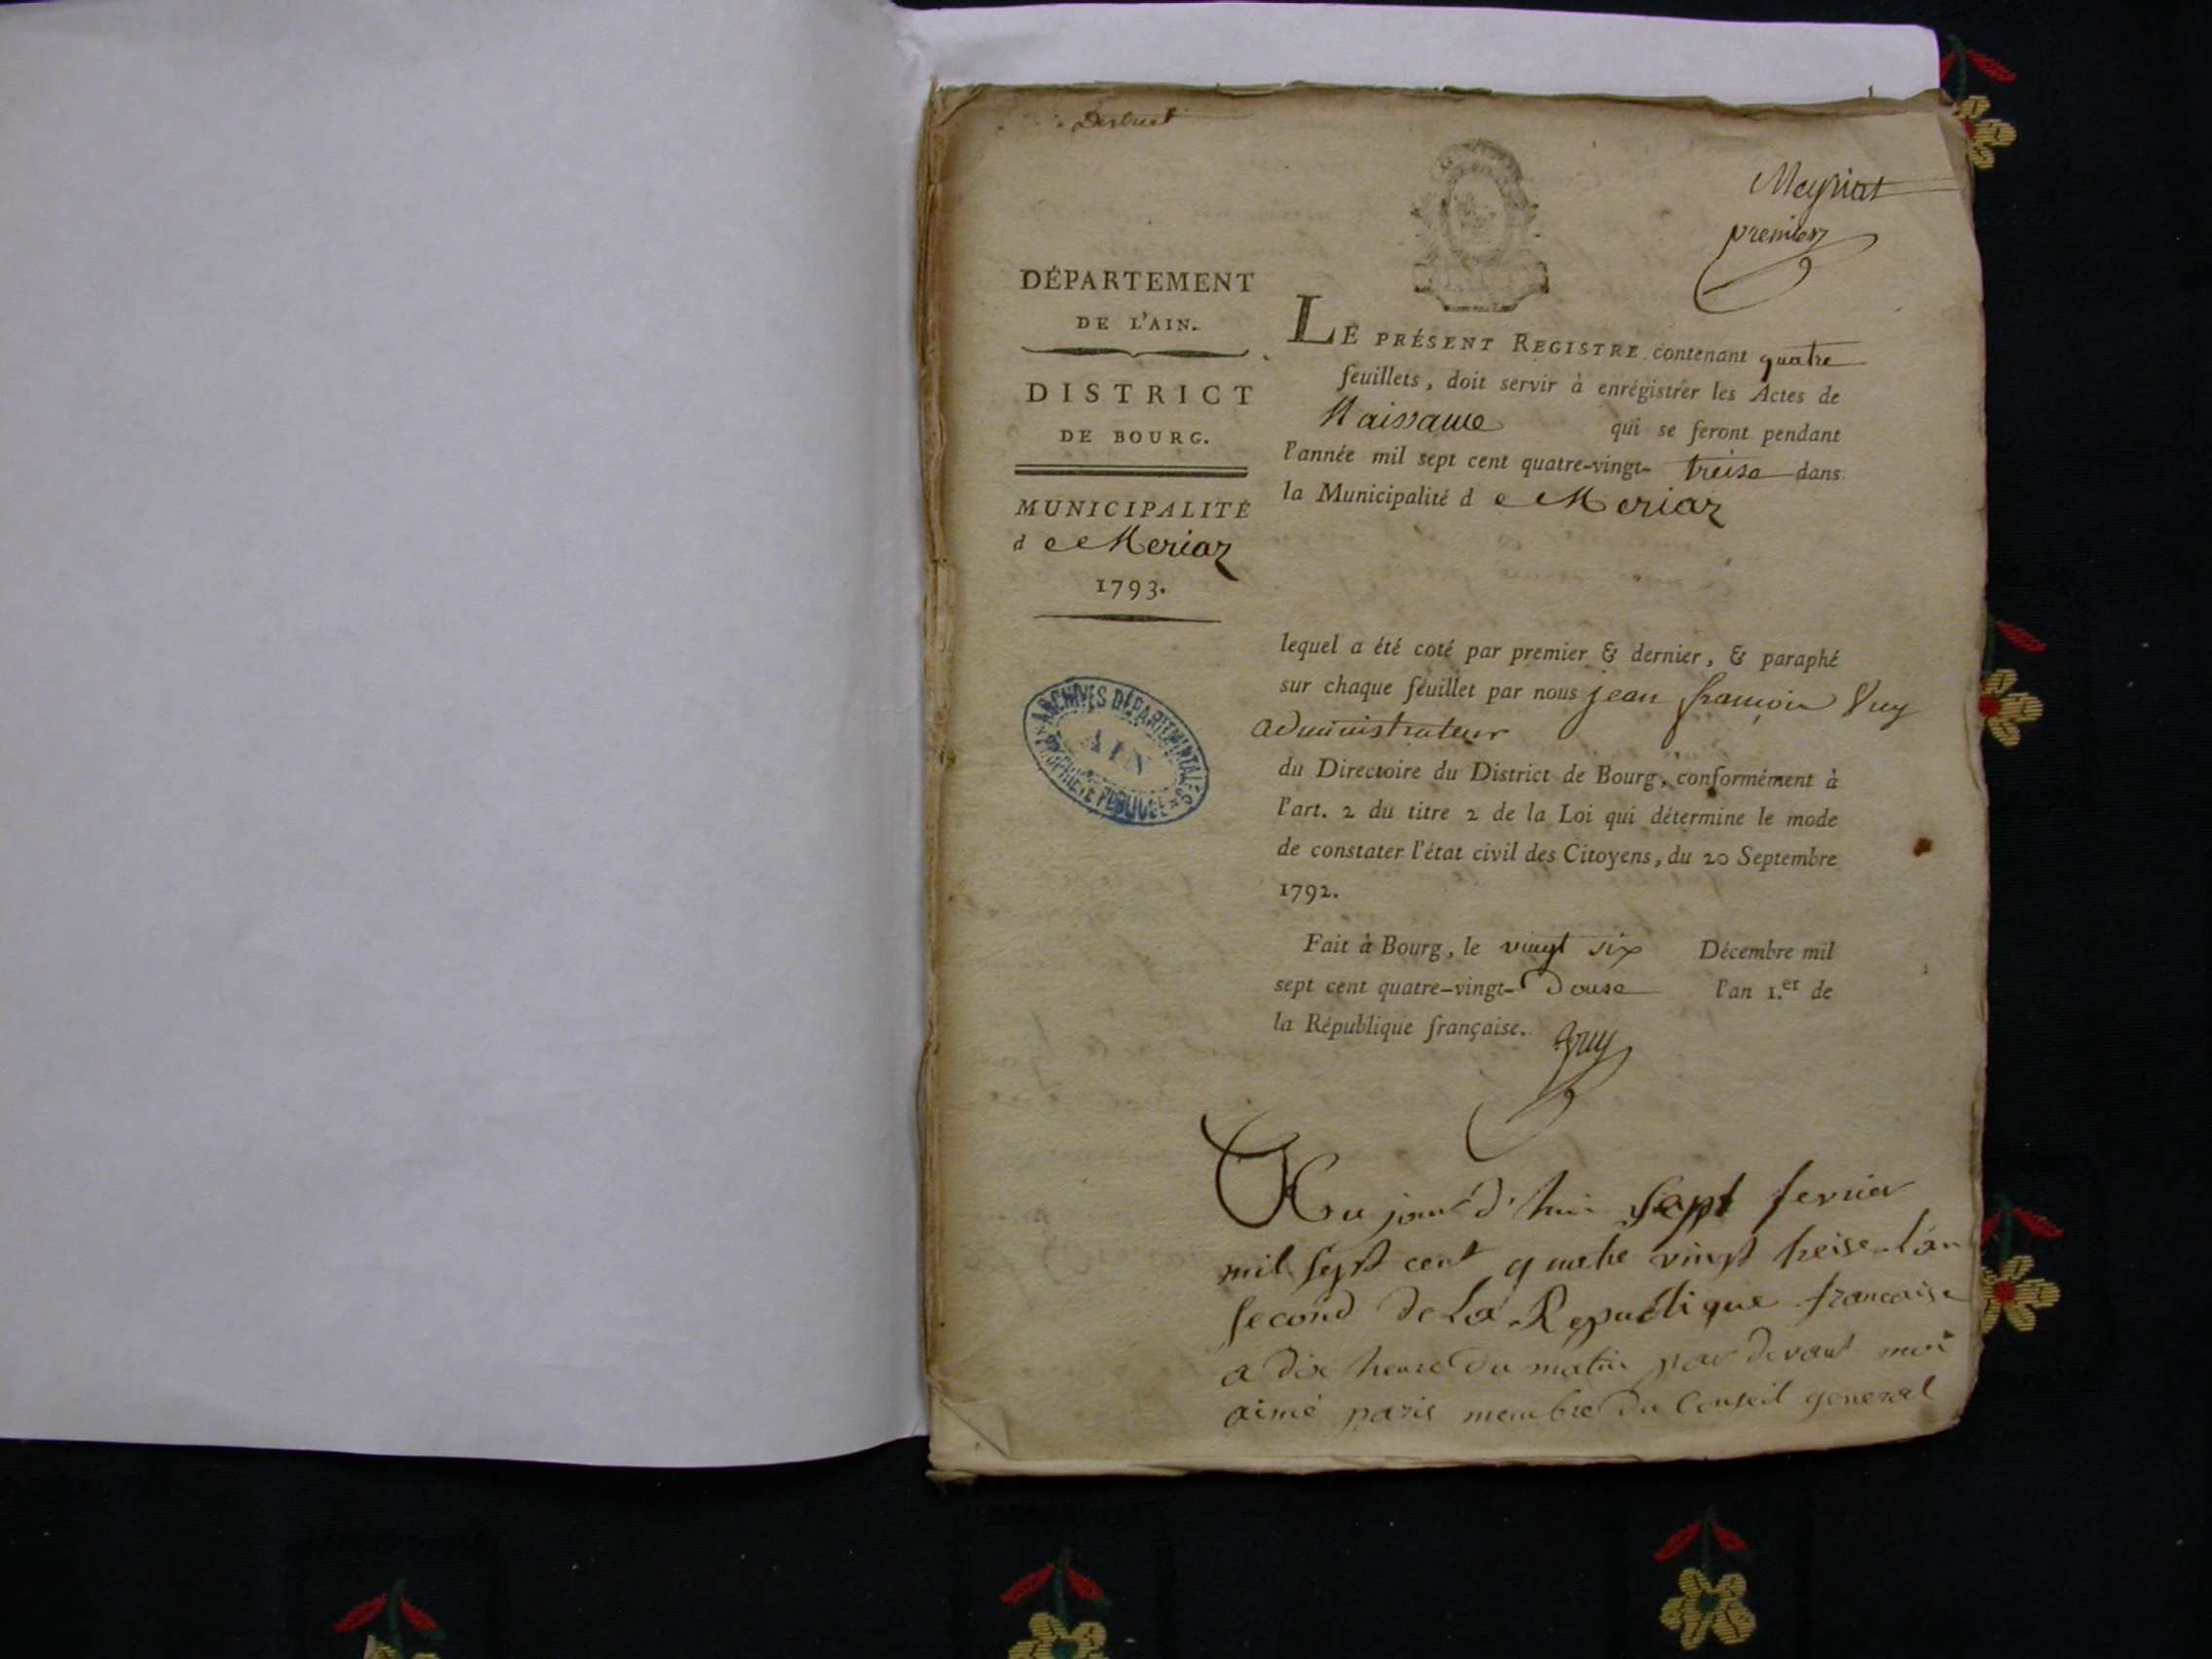 District
Meyriat
premier
DÉPARTEMENT
DE L'AIN.
DISTRICT
DE BOURG.
MUNICIPALITÉ
d e Meriaz
1793.
LE PRÉSENT REGISTRE contenant quatre
feuillets, doit servir à enrégistrer les Actes de
Naissance qui se feront pendant
l'année mil sept cent quatre-vingt- treise dans
la Municipalité d e Meriaz
lequel a été coté par premier & dernier, & paraphé
sur chaque feuillet par nous jean françois Puy
administrateur
du Directoire du District de Bourg, conformément à
l'art. 2 du titre 2 de la Loi qui détermine le mode
de constater l'état civil des Citoyens, du 20 Septembre
1792.
ARCHIVES DÉPARTEMENTALES
AIN
PROPRIÉTÉ PUBLIQUE
Fait à Bourg, le vingt six Décembre mil
sept cent quatre-vingt- douse l'an 1.er de
la République française.
Puy
Au jourd'hui sept fevrier
mil sept cent quatre vingt treise l'an
second de La Republique francaise
a dix heure du matin par devant moi
aimé paris membre du Conseil general